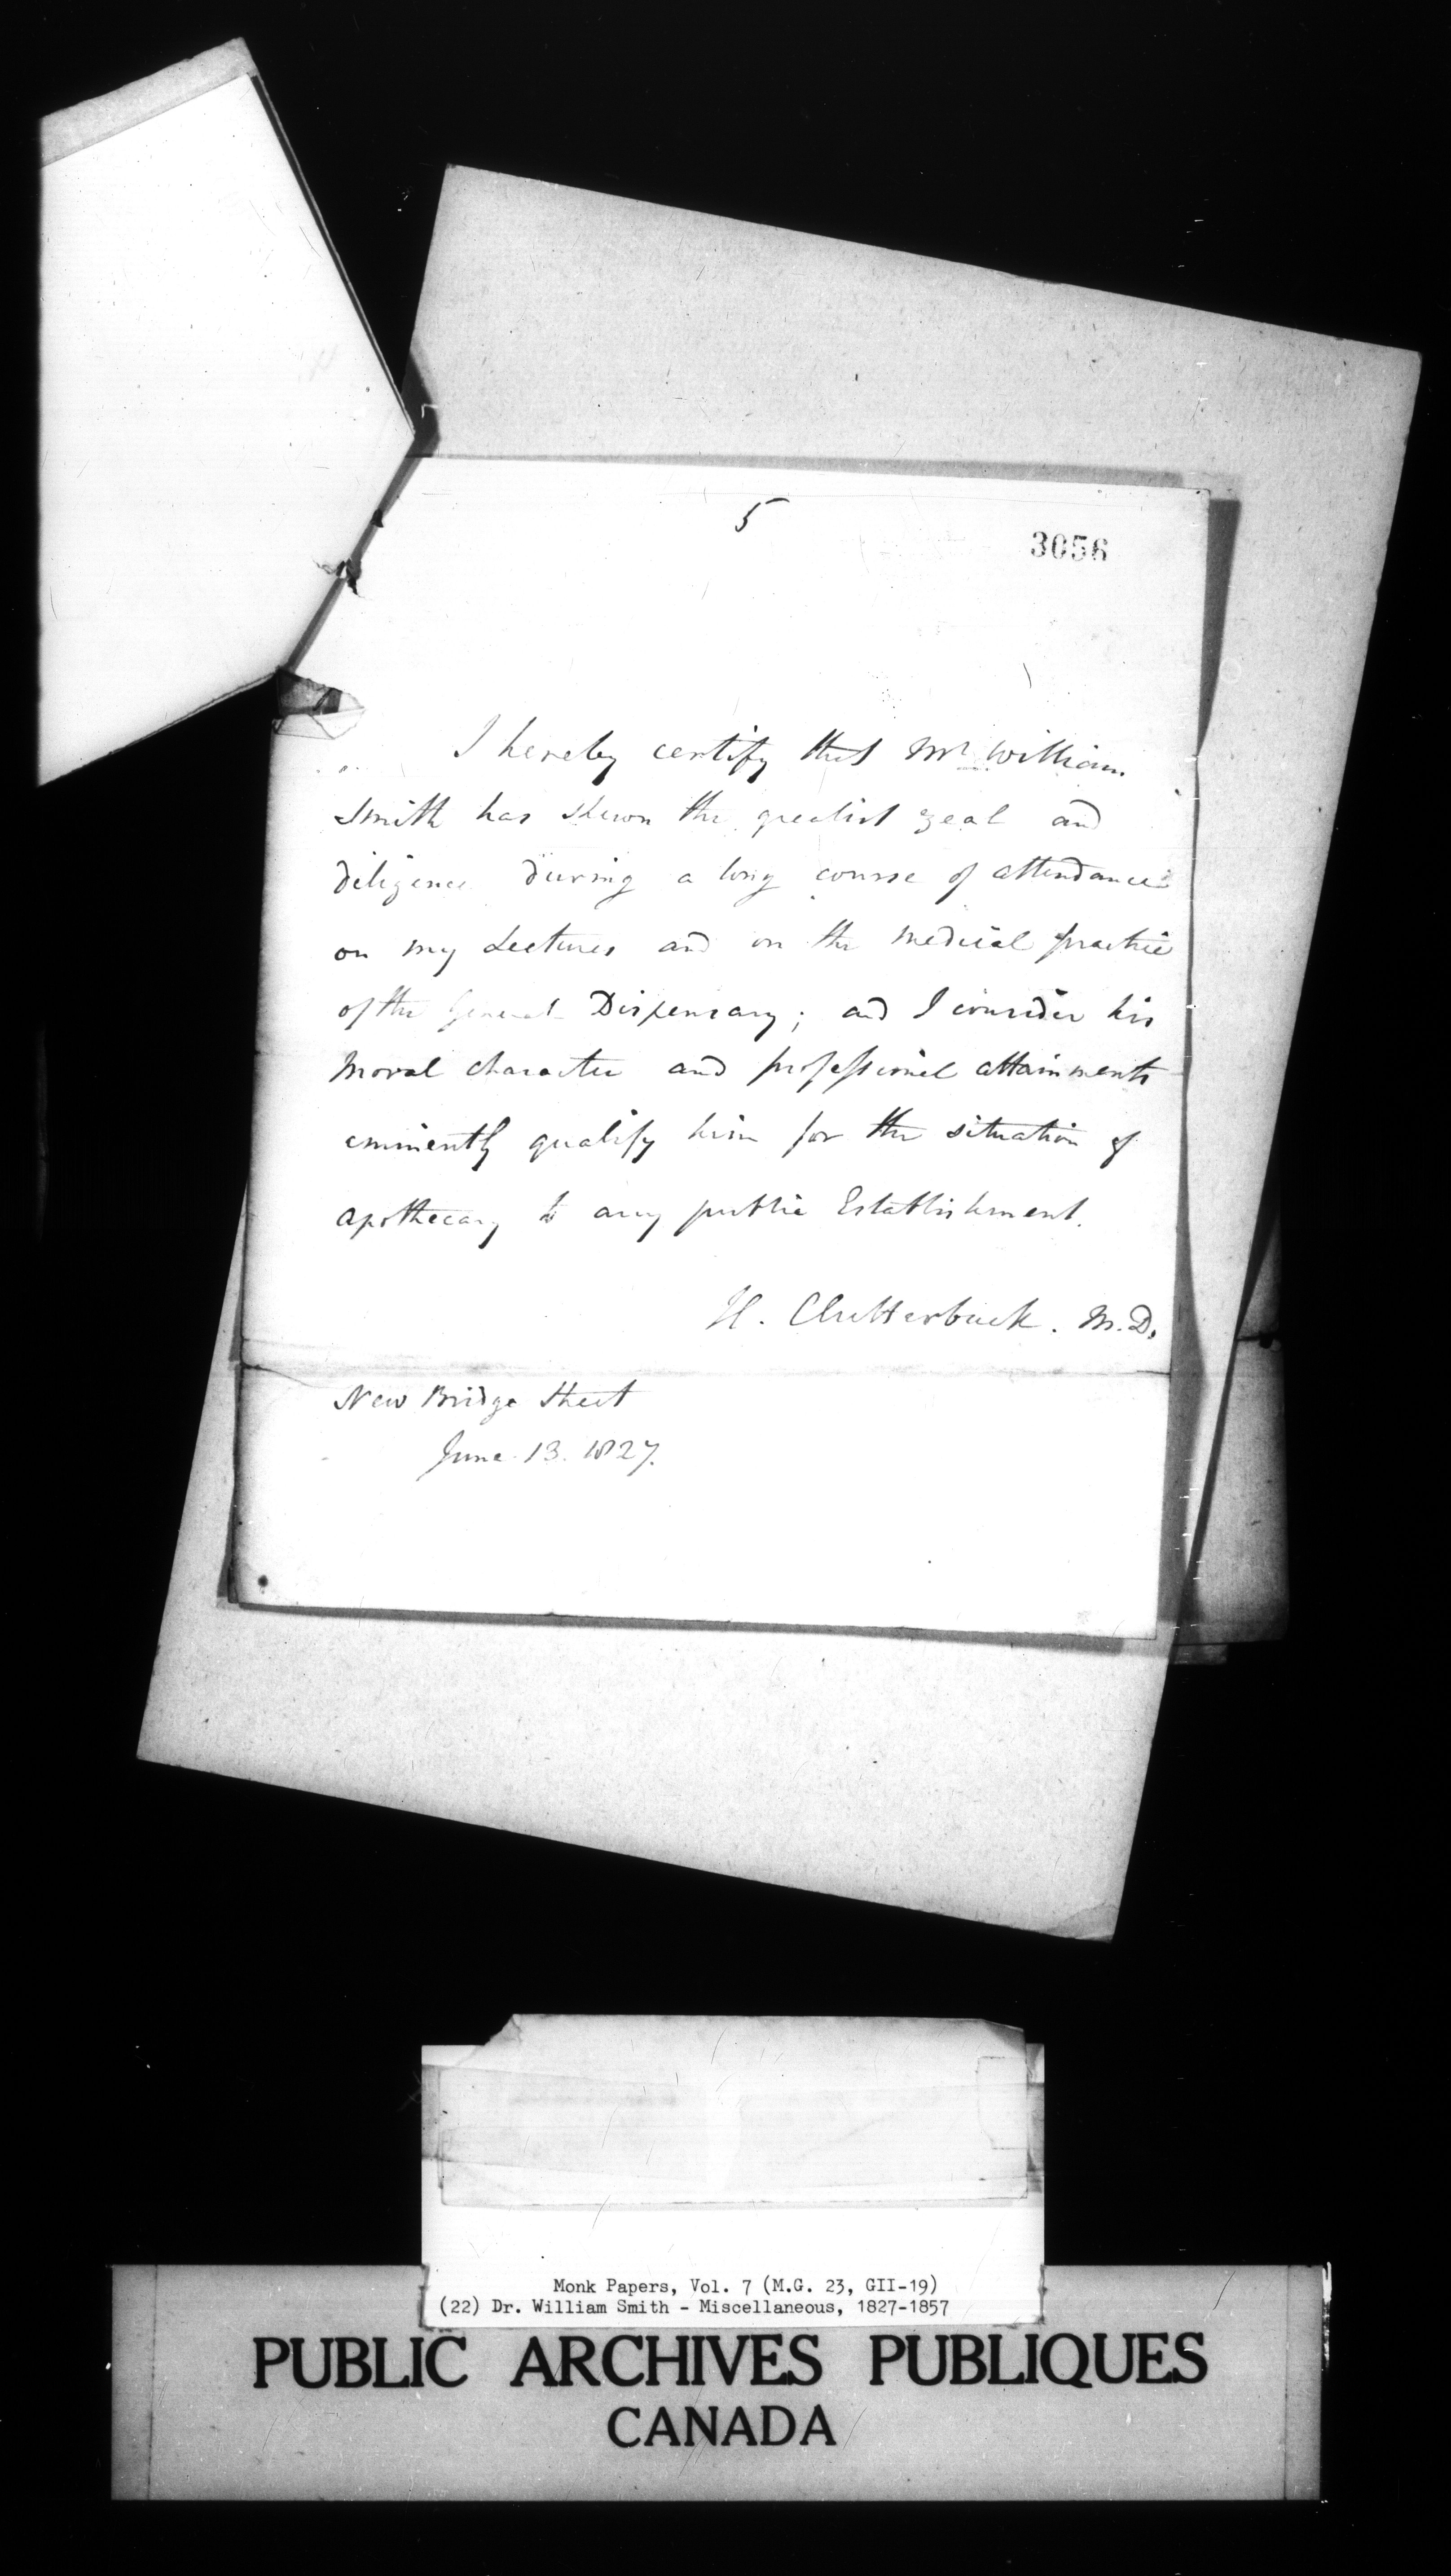 5
3056
I hereby certify that Mr. William
Smith has shewn the greatest zeal and
diligence during a long course of attendance
on my Lectures and on the medical practice
of the General Dispensary; and I consider his
moral character and professional attainments
eminently qualify him for the situation of
apothecary to any public Establishment.
H. Clutterbuck. M.D.
New Bridge Street
June 13. 1827.
Monk Papers, Vol. 7 (M.G. 23, GII-19)
(22) Dr. William Smith - Miscellaneous, 1827-1857
PUBLIC ARCHIVES PUBLIQUES
CANADA